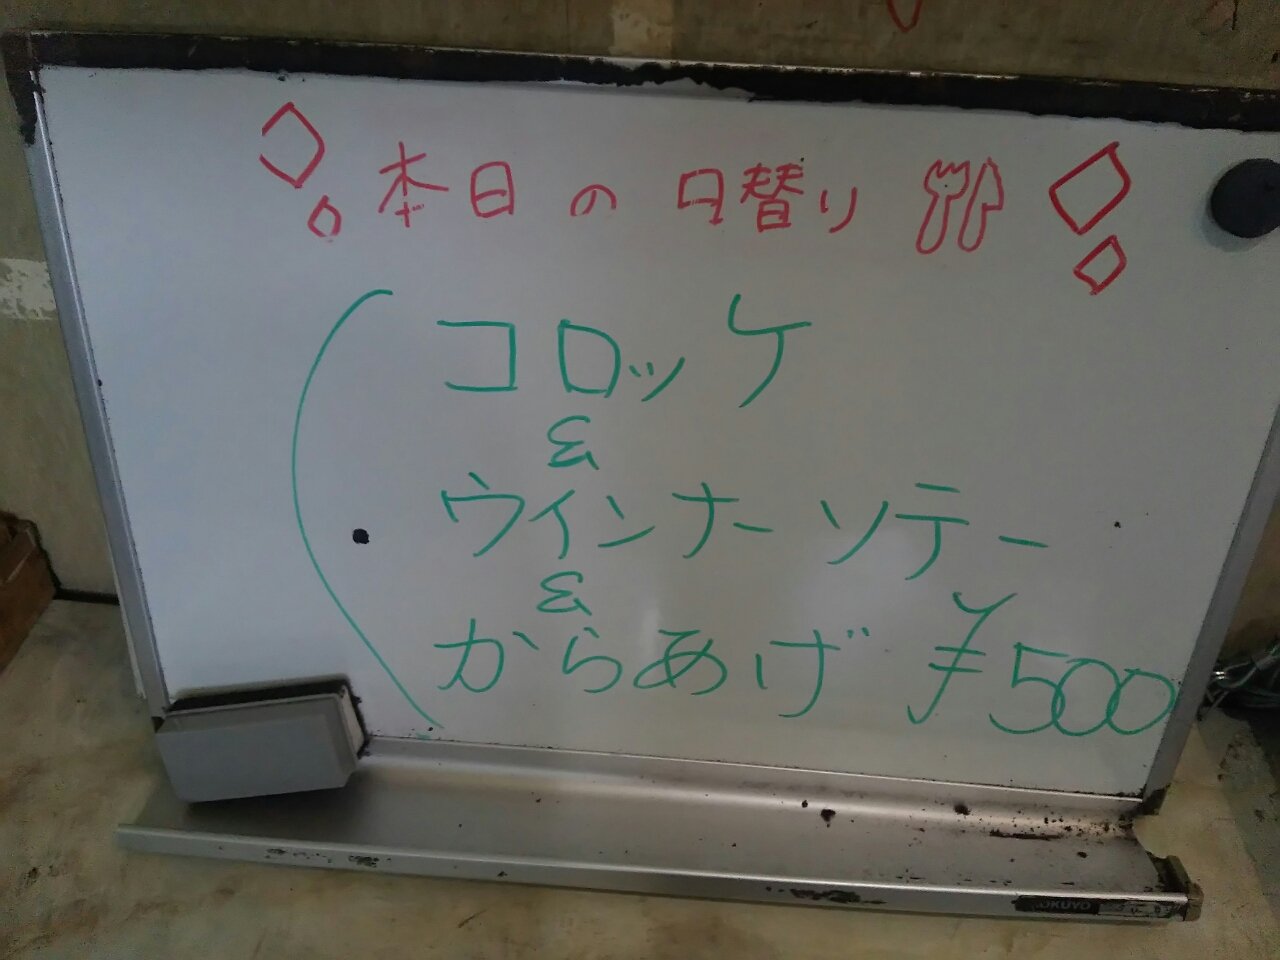 本日の日替り
コロッケ
&
ウインナーソテー
&
からあげ ¥500
KOKUYO